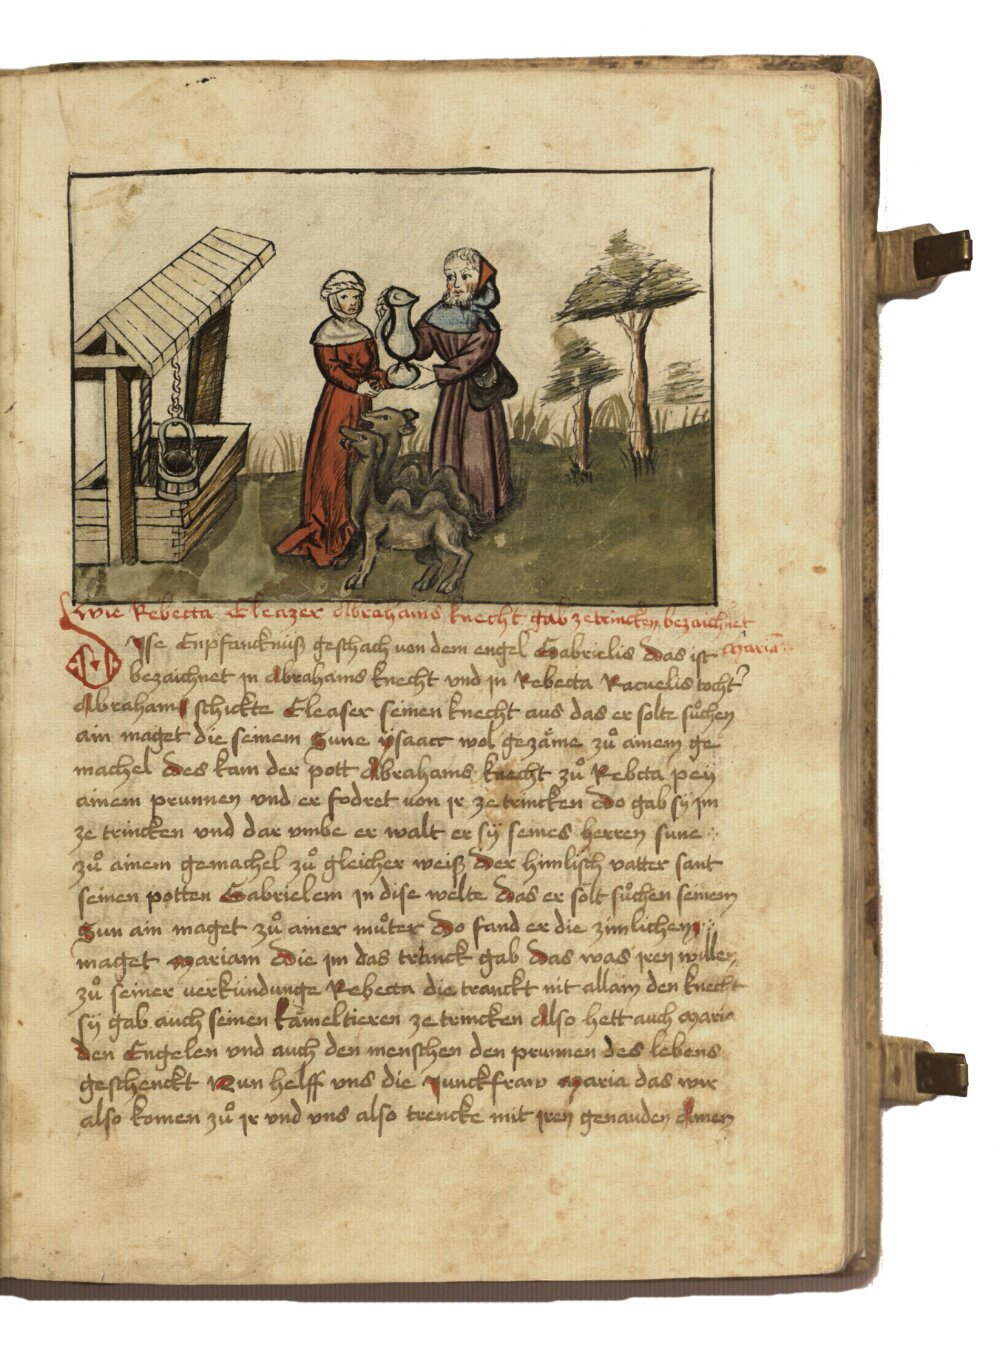 19
Wie Rebecca Eleazer Abrahams knecht gab ze trincken bezaichnet
Maria
Dise Enpfancknuß geschach von dem engel Gabrielis Das ist
bezaichnet in Abrahams knecht vnd in Rebecca Racuelis tocht᾽
Abrahams schickte Eleaser seinen knecht aus das er solte sůchen
ain maget die seinem Sune ysaacc wol gezäme zů ainem ge
machel Des kam der pott Abrahams knecht zů Rebcca pey
ainem prunnen vnd er fodret von jr ze trincken Do gab sy jm
ze trincken vnd dar vmbe er walt er sy seines herren sune
zů ainem gemachel zů gleicher weiß Der himlisch vatter sant
seinen potten Gabrielem in dise welte Das er solt sůchen seinem
Sun ain maget zů ainer můter Do fand er die zimlichen
maget Mariam Die jm das tranck gab Das was jren willen
zů seiner verkündunge Rebecca die tranckt nit allain den knecht
sy gab auch seinen kämeltieren ze trincken Also hett auch Maria
Den Engelen vnd auch den menschen den prunnen des lebens
geschenckt Nun helff vns die Junckfraw Maria das wir
also komen zů jr vnd vns also trencke mit jren genauden Amen